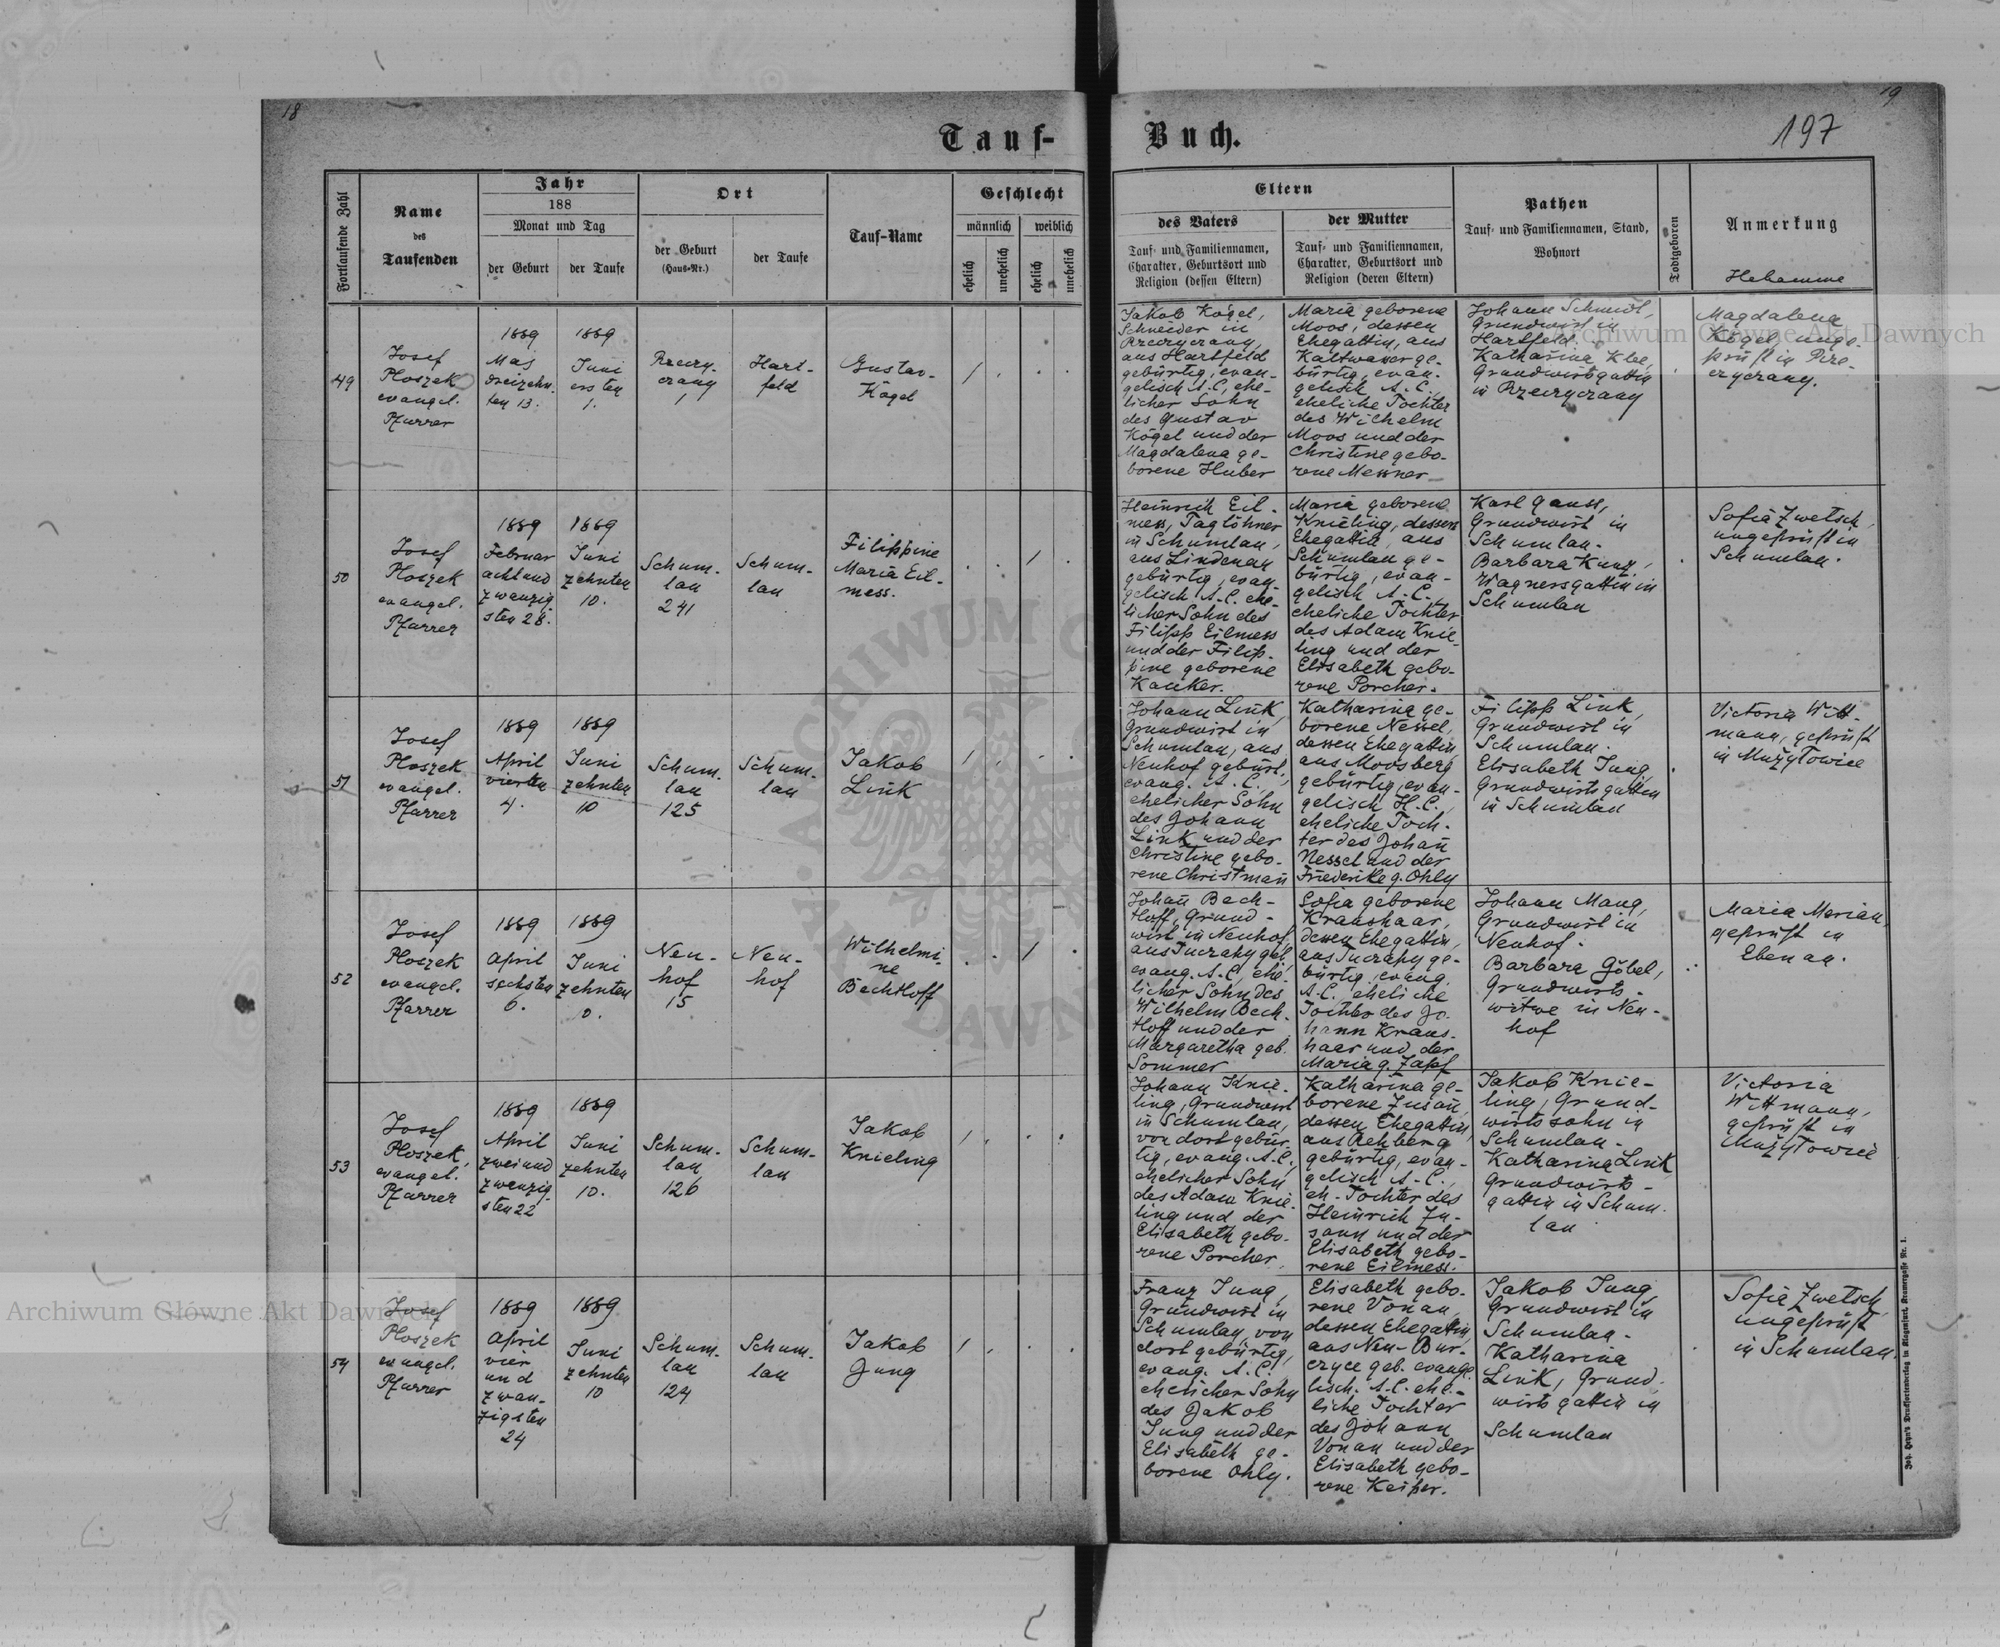 18
19
Tauf-
Buch.
197
Fortlaufende Zahl
Name
des
Taufenden
Jahr
188
Monat und Tag
der Geburt
der Taufe
Ort
der Geburt
(Haus-Nr.)
der Taufe
Tauf-Name
Geschlecht
männlich
weiblich
ehelich
unehelich
ehelich
unehelich
Eltern
des Vaters
Tauf- und Familiennamen,
Charakter, Geburtsort und
Religion (dessen Eltern)
der Mutter
Tauf- und Familiennamen,
Charakter, Geburtsort und
Religion (deren Eltern)
Pathen
Tauf- und Familiennamen, Stand,
Wohnort
Todtgeboren
Anmerkung
Hebamme
49
Josef
Ploszek
evangel.
Pfarrer
1889
Mai
dreizehn-
ten 13.
1889
Juni
ersten
1.
Hart-
feld
Gustav
Kögel
Jakob Kögel,
Schneider in
aus Hartfeld
gebürtig, evan-
gelisch A.C., ehe-
licher Sohn
des Gustav
Kögel und der
Magdalena ge-
borene Huber
Maria geborene
Moos, dessen
Ehegattin, aus
Kaltwasser ge-
bürtig, evan-
gelisch A.C.,
eheliche Tochter
des Wilhelm
Moos und der
Christine gebo-
rene Messner
Johann Schmidt,
Grundwirt in
Hartfeld.
Katharina Klee,
Grundwirtsgattin
in
Magdalena
Kögel, unge-
prüft in
50
Josef
Ploszek
evangel.
Pfarrer
1889
Februar
acht und
zwanzig
sten 28.
1889
Juni
zehnten
10.
Schum-
lau
241
Schum-
lau
Filippine
Maria Eil-
mess.
Heinrich Eil-
mess, Taglöhner
in Schumlau,
aus Lindenau
gebürtig, evan-
gelisch A.C. ehe-
licher Sohn des
Filipp Eilmess
und der Filip-
pine geborene
Kauker.
Maria geborene
Knieling, dessen
Ehegattin, aus
Schumlau ge-
bürtig, evan-
gelisch A.C.,
eheliche Tochter
des Adam Knie-
ling und der
Elisabeth gebo-
rene Porcher.
Karl Gauss,
Grundwirt in
Schumlau.
Barbara Kunz,
Wagnersgattin in
Schumlau
Sofia Zwetsch,
ungeprüft in
Schumlau.
51
Josef
Ploszek
evangel.
Pfarrer
1889
April
vierten
4.
1889
Juni
zehnten
10
Schum-
lau
125
Schum-
lau
Jakob
Link
Johann Link,
Grundwirt in
Schumlau, aus
Neuhof gebürt.,
evang. A.C.,
ehelicher Sohn
des Johann
Link und der
Christine gebo-
rene Christman̄
Katharina ge-
borene Nessel,
dessen Ehegattin,
aus Moosberg
gebürtig, evan-
gelisch H.C.,
eheliche Toch-
ter des Johan̄
Nessel und der
Friederike g. Ohly
Filipp Link,
Grundwirt in
Schumlau.
Elisabeth Jung,
Grundwirtsgattin
in Schumlau
Victoria Witt-
mann, geprüft
in Mużyłowice
52
Josef
Ploszek
evangel.
Pfarrer
1889
April
sechsten
6.
1889
Juni
zehnten
10.
Neu-
hof
15
Neu-
hof
Wilhelmi-
ne
Bechtloff
Johan̄ Bech-
tloff, Grund-
wirt in Neuhof,
evang. A.C., ehe-
licher Sohn des
Wilhelm Bech-
tloff und der
Margaretha geb.
Sommer
Sofia geborene
Kraushaar,
dessen Ehegattin,
bürtig, evang.
A.C. eheliche
Tochter des Jo-
hann Kraus-
haar und der
Maria g. Zapf
Johann Mang,
Grundwirt in
Neuhof.
Barbara Göbel,
Grundwirts-
witwe in Neu-
hof
Maria Merian,
geprüft in
Ebenau.
53
Josef
Ploszek,
evangel.
Pfarrer
1889
April
zwei und
zwanzig-
sten 22
1889
Juni
zehnten
10.
Schum-
lau
126
Schum-
lau
Jakob
Knieling
Johann Knie-
ling, Grundwirt
in Schumlau,
von dort gebür-
tig, evang. A.C.,
ehelicher Sohn
des Adam Knie-
ling und der
Elisabeth gebo-
rene Porcher.
Katharina ge-
borene Zusan̄,
dessen Ehegattin,
aus Rehberg
gebürtig, evan-
gelisch A.C.,
eh. Tochter des
Heinrich Zu-
sann und der
Elisabeth gebo-
rene Eilmess.
Jakob Knie-
ling, Grund-
wirtssohn in
Schumlau.
Katharina Link
Grundwirts-
gattin in Schum-
lau
Victoria
Wittmann,
geprüft in
Mużyłowice
54
Josef
Ploszek
evangel.
Pfarrer
1889
April
vier
und
zwan-
zigsten
24
1889
Juni
zehnten
10
Schum-
lau
124
Schum-
lau
Jakob
Jung
Franz Jung,
Grundwirt in
Schumlau, von
dort gebürtig,
evang. A.C.
ehelicher Sohn
des Jakob
Jung und der
Elisabeth ge-
borene Ohly.
Elisabeth gebo-
rene Vonau,
dessen Ehegattin,
aus Neu-Bur-
czyce geb. evange-
lisch. A.C. ehe-
liche Tochter
des Johann
Vonau und der
Elisabeth gebo-
rene Keiper.
Jakob Jung,
Grundwirt in
Schumlau.
Katharina
Link, Grund-
wirtsgattin in
Schumlau
Sofia Zwetsch,
ungeprüft
in Schumlau.
Joh. Heyn's Drucksortenverlag in Klagenfurt, Kramergasse Nr. 1.
Archiwum Główne Akt Dawnych
Archiwum Główne Akt Dawnych